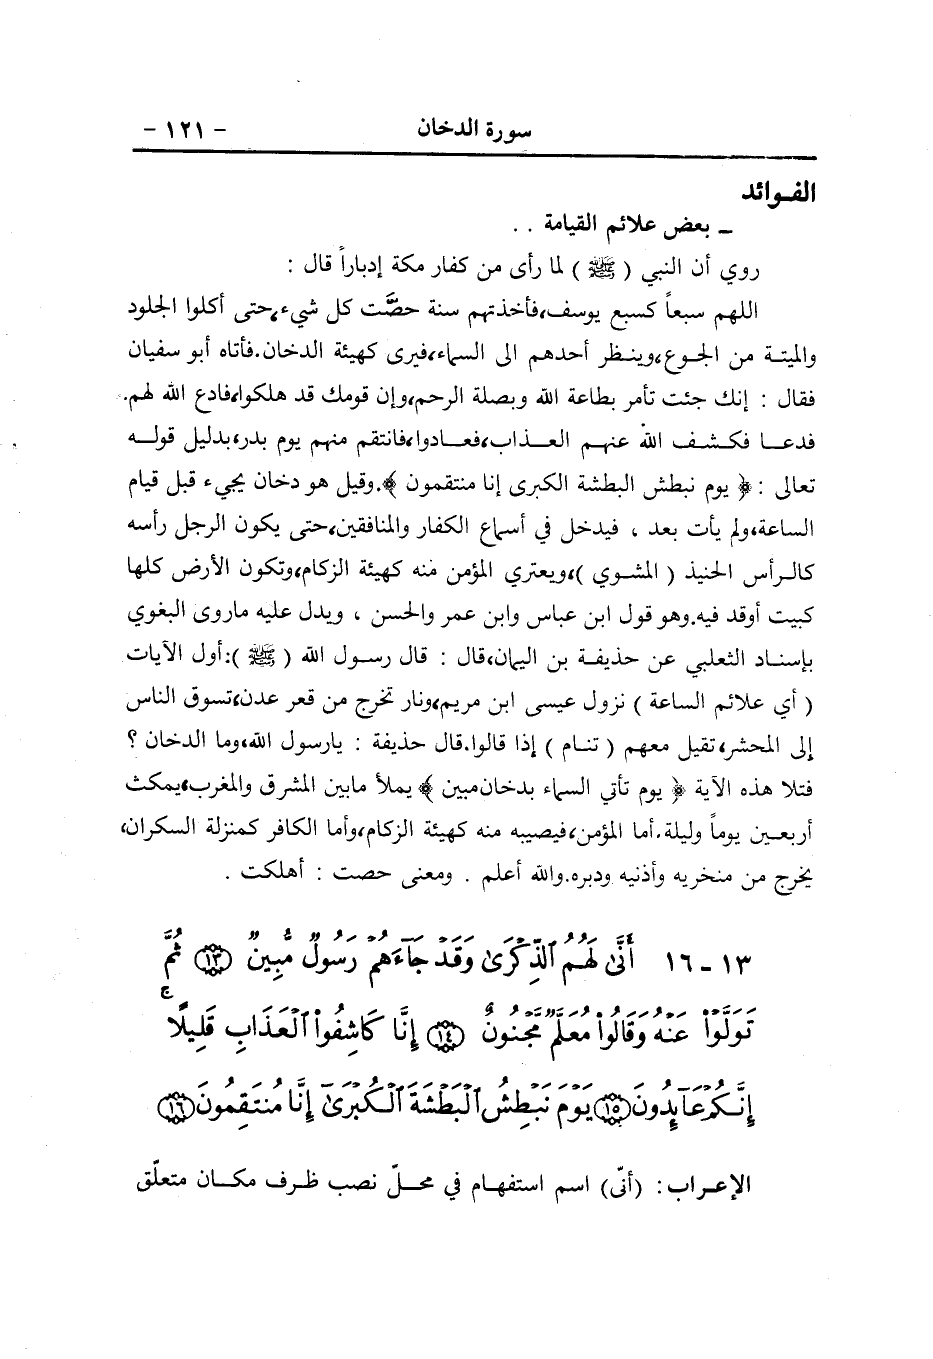 سورة الدخان - ١٢١ -
الفـوائد
ـ بعض علائم القيامة . .
روي أن النبي ( ﷺ ) لما رأى من كفار مكة إدباراً قال :
اللهم سبعاً كسبع يوسف، فأخذتهم سنة حصَّت كل شيء، حتى أكلوا الجلود
والميتـة من الجوع، وينـظر أحدهم الى السماء، فيرى كهيئة الدخان. فأتاه أبو سفيان
فقال : إنك جئت تأمر بطاعة الله وبصلة الرحم، وإن قومك قد هلكوا، فادع الله لهم.
فدعـا فكـشـف الله عنهـم العـذاب، فعـادوا، فانتقم منهم يوم بدر، بدليل قولـه
تعالى : ﴿ يوم نبطش البطشة الكبرى إنا منتقمون ﴾. وقيل هو دخان يجيء قبل قيام
الساعة، ولم يأت بعد ، فيدخل في أسماع الكفار والمنافقين، حتى يكون الرجل رأسه
كالـرأس الحنيذ ( المشـوي )، ويعتري المؤمن منه كهيئة الزكام، وتكون الأرض كلها
كبيت أوقد فيه. وهو قول ابن عباس وابن عمر والحسن ، ويدل عليه ماروى البغوي
بإسنـاد الثعلبي عن حذيفـة بن اليمان، قال : قال رسـول الله ( ﷺ ): أول الآيات
( أي علائم الساعة ) نزول عيسى ابن مريم، ونار تخرج من قعر عدن، تسوق الناس
إلى المحشر، تقيل معهم ( تنـام ) إذا قالوا. قال حذيفة : يارسول الله، وما الدخان ؟
فتلا هذه الآية ﴿ يوم تأتي السماء بدخان مبين ﴾ يملأ مابين المشرق والمغرب، يمكث
أربعـين يوماً وليلة. أما المؤمن، فيصيبه منه كهيئة الزكام، وأما الكافر كمنزلة السكران،
يخرج من منخريه وأذنيه ودبره. والله أعلم . ومعنى حصت : أهلكت .
١٣ - ١٦ أَنَّىٰ لَهُمُ ٱلذِّكْرَىٰ وَقَدْ جَآءَهُمْ رَسُولٌ مُّبِينٌ ﴿١٣﴾ ثُمَّ
تَوَلَّوْا۟ عَنْهُ وَقَالُوا۟ مُعَلَّمٌ مَّجْنُونٌ ﴿١٤﴾ إِنَّا كَاشِفُوا۟ ٱلْعَذَابِ قَلِيلًا ۚ
إِنَّكُمْ عَآئِدُونَ ﴿١٥﴾ يَوْمَ نَبْطِشُ ٱلْبَطْشَةَ ٱلْكُبْرَىٰٓ إِنَّا مُنتَقِمُونَ ﴿١٦﴾
الإعـراب : (أنّى) اسم استفهـام في محـلّ نصب ظـرف مكـان متعلّق